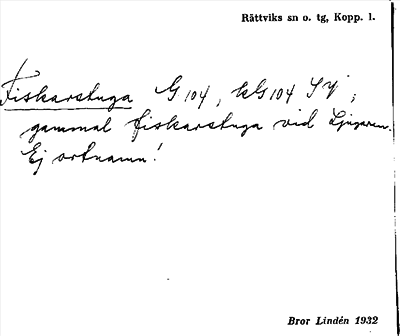 Rättviks sn o. tg, Kopp. l.
Fiskarstuga G 104, kG 104 SV;
gammal fiskarstuga vid Ljugaren.
Ej ortnamn!
Bror Lindén 1932